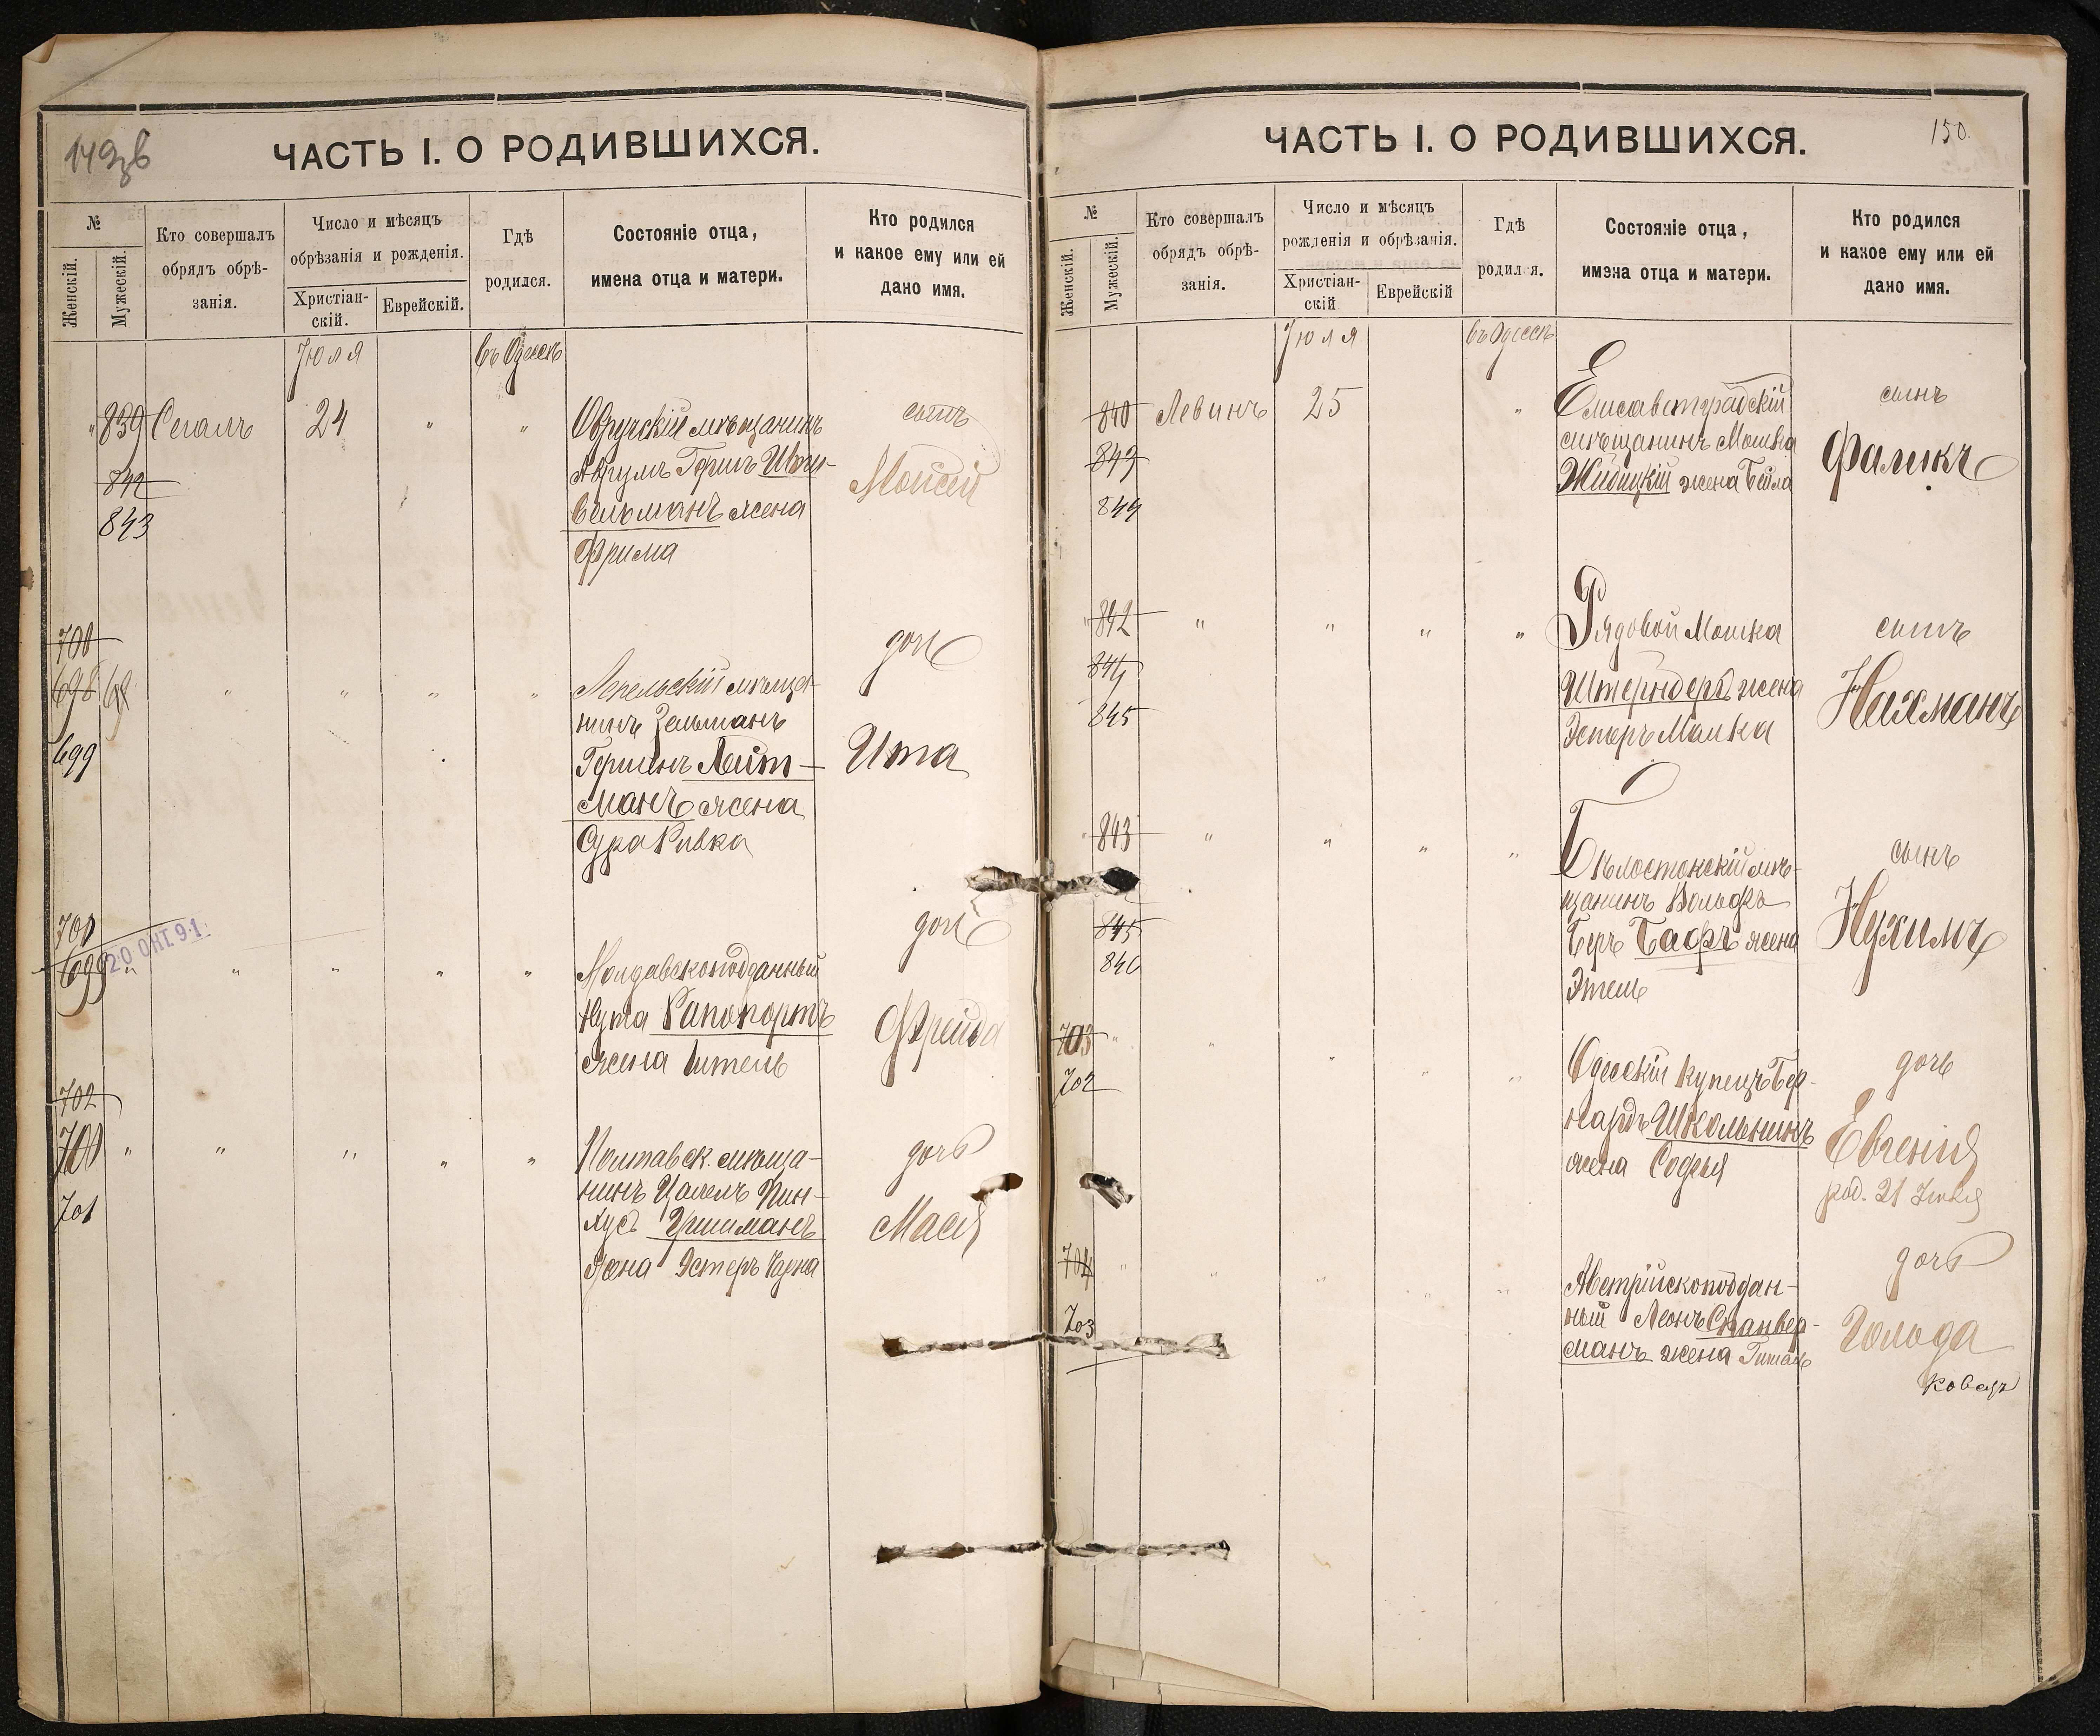 149об
ЧАСТЬ I. О РОДИВШИХСЯ.
№
Женскій.
Мужескій.
Кто совершалъ
обрядъ обрѣ-
занія.
Число и мѣсяцъ
обрѣзанія и рожденія.
Христіан-
скій.
Еврейскій.
Гдѣ
родился.
Состояніе отца,
имена отца и матери.
Кто родился
и какое ему или ей
дано имя.
Іюля
въ Одессѣ
" 839 Сегалъ 24 " "
842
843
Овручскій мѣщанинъ
Аврумъ Гершъ
жена
Фрима
сынъ
Мойсей
700
698
699
" " " "
Лепельскій мѣща-
нинъ Зельманъ
Гершенъ Лейт-
манъ жена
Сура Ривка
дочь
Ита
701
699 " " " " "
20 ОКТ 91
Молдавскоподданный
Нута Рапопортъ
жена Ентель
дочь
Фрейда
702
700 " " " " "
701
Полтавск. мѣща-
нинъ Цалелъ Пин-
хусъ Гришманъ
жена Эстеръ Чарна
дочь
Мася
150.
ЧАСТЬ I. О РОДИВШИХСЯ.
№
Женскій.
Мужескій.
Кто совершалъ
обрядъ обрѣ-
занія.
Число и мѣсяцъ
рожденія и обрѣзанія.
Христіан-
скій
Еврейскій
Гдѣ
родился.
Состояніе отца,
имена отца и матери.
Кто родился
и какое ему или ей
дано имя.
Іюля
въ Одессѣ
840 Левинъ 25 "
843
844
Елисаветградскій
мѣщанинъ Мошка
Жидицкій жена Бейла
сынъ
Фаликъ
" 842 " " " "
844
845
Рядовой Мошка
Штернбергъ жена
Эстеръ Малка
сынъ
Нахманъ
" 843 " " " "
845
846
Бѣлостокскій мѣ-
щанинъ Вольфъ
Беръ Бафъ жена
Этель
сынъ
Нухимъ
703 " " " " "
702
Одесскій купецъ Бер-
нардъ Школьникъ
жена Софья
дочь
Евгенія
род. 21 Іюля
704 " " " " "
703
Австрійскоподдан-
ный Леонъ
манъ жена
дочь
Гольда